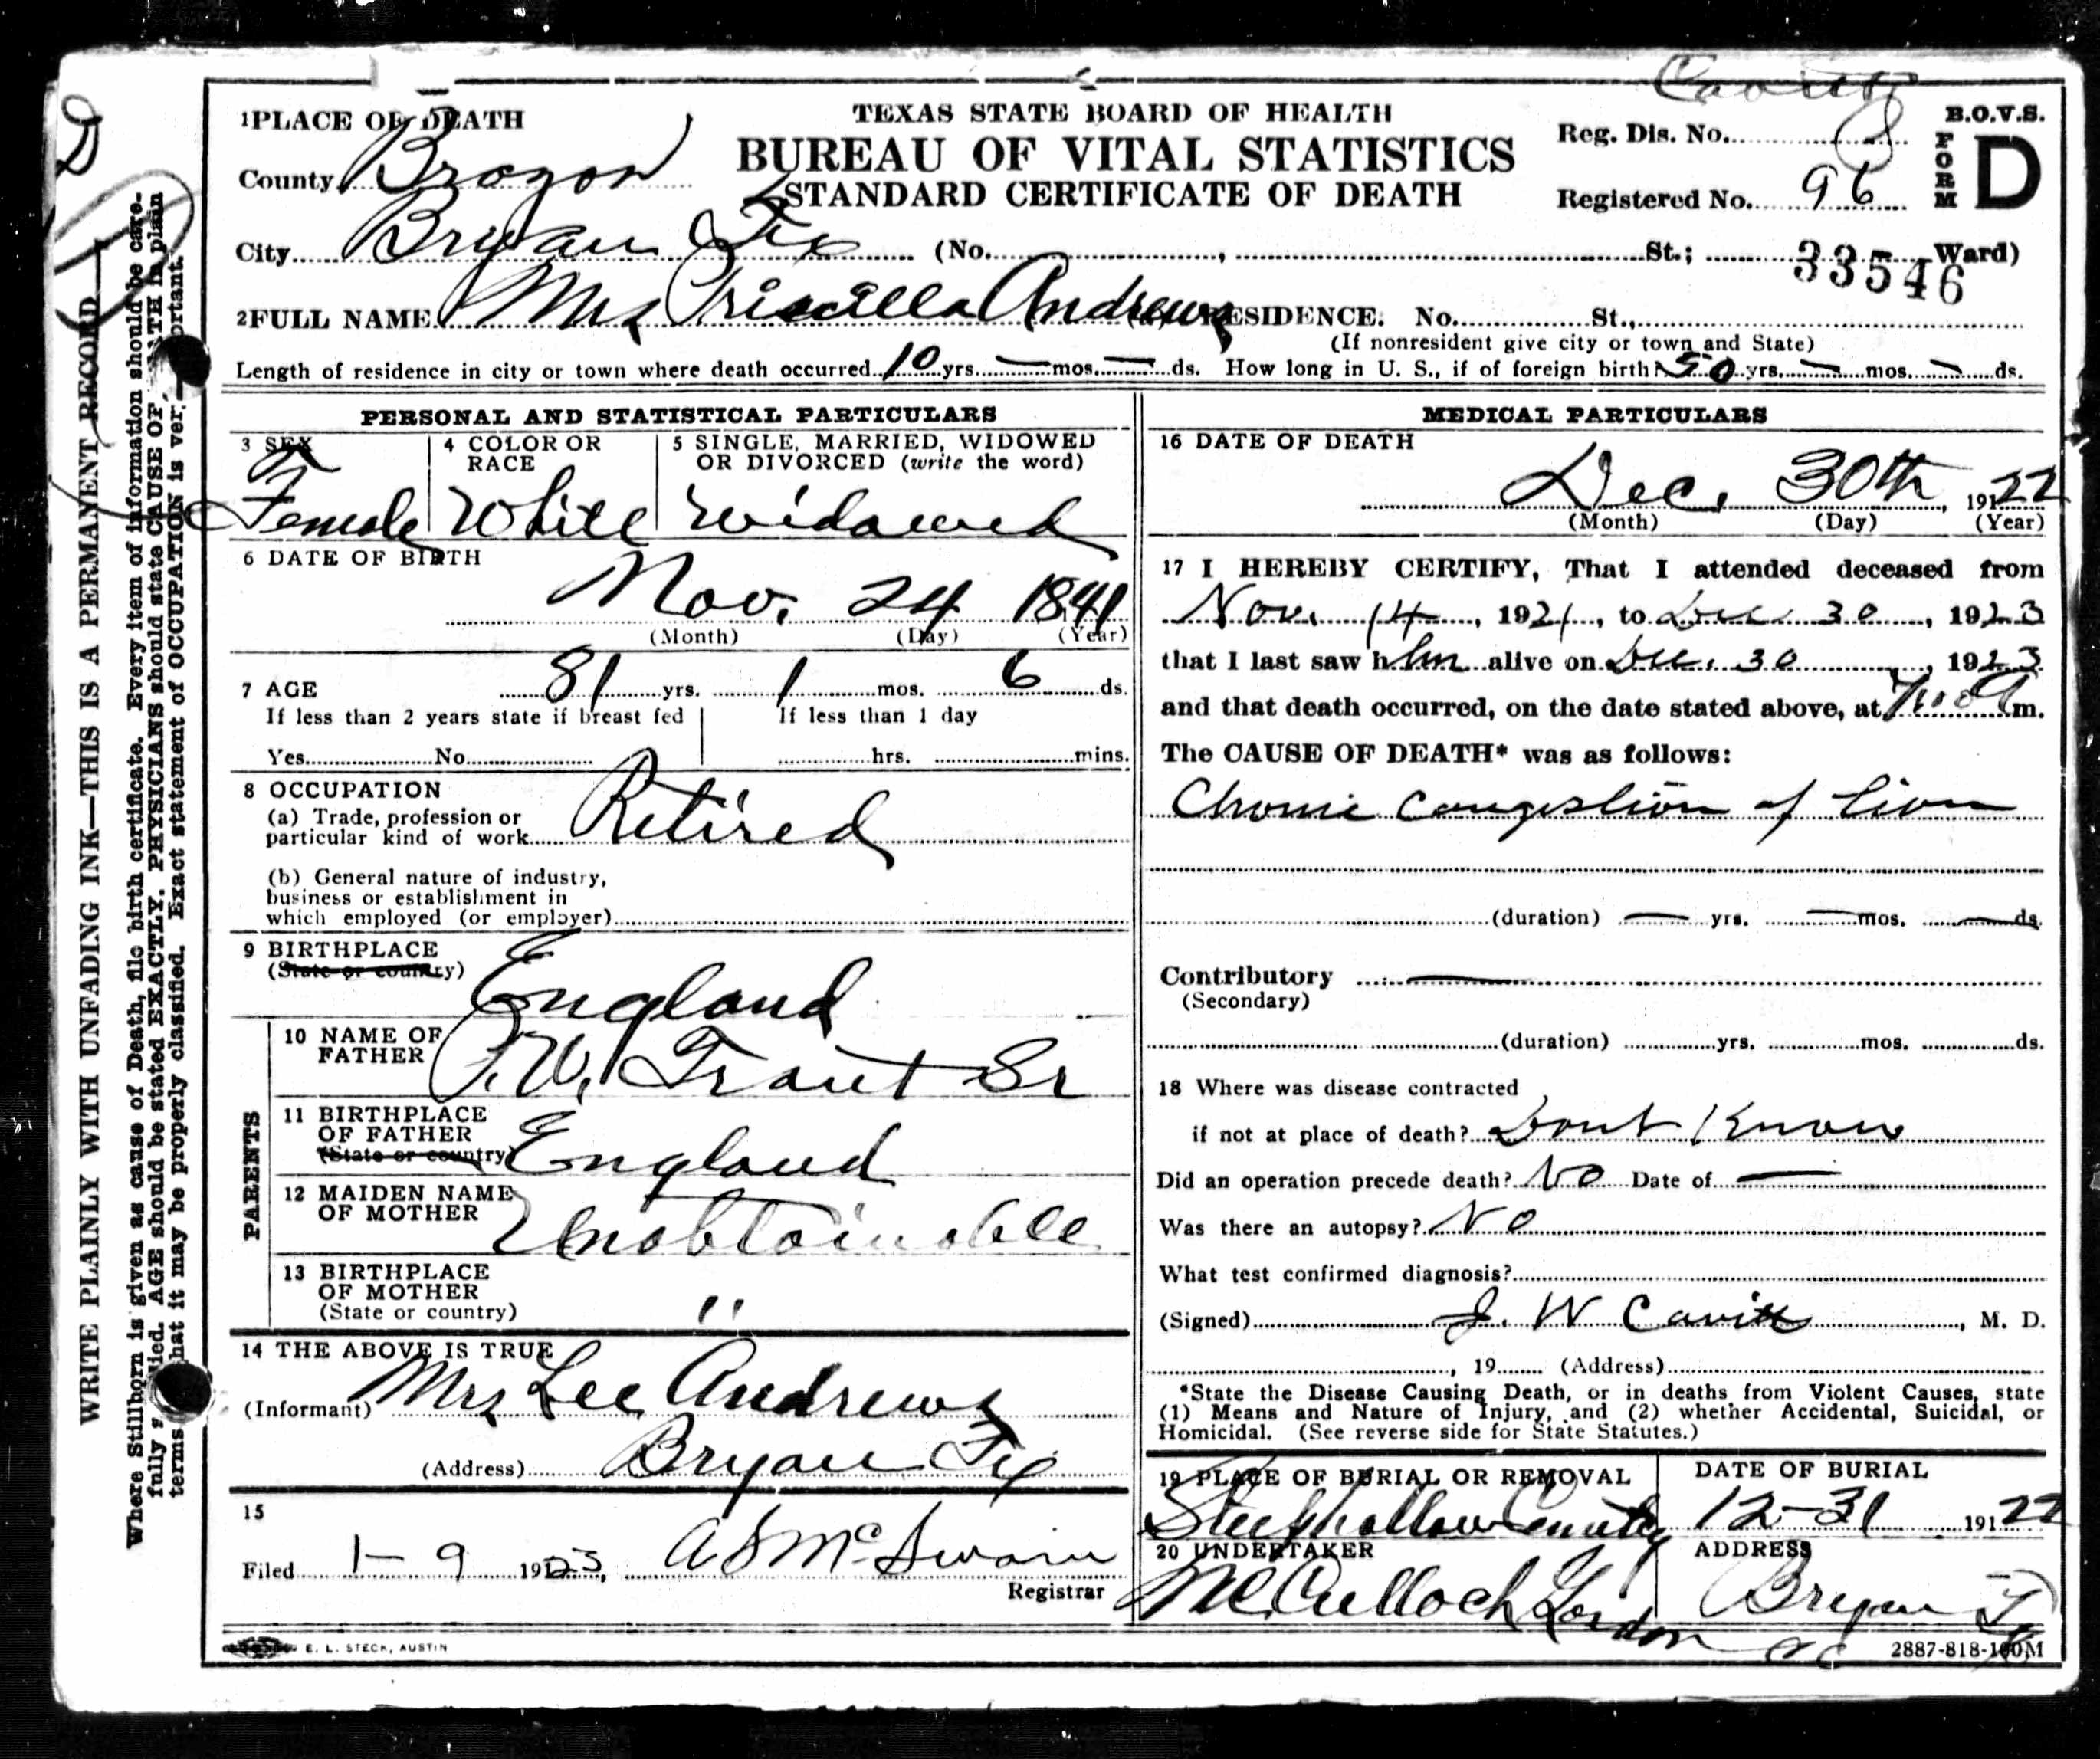 County
TEXAS STATE BOARD OF HEALTH
BUREAU OF VITAL STATISTICS
STANDARD CERTIFICATE OF DEATH
B.O.V.S.
FORM D
Reg. Dis. No.
Registered No. 96
33546
1 PLACE OF DEATH
County Brazos
City Bryan Tex (No. , St.; Ward)
2 FULL NAME Mrs Priscilla Andrews RESIDENCE. No. St.,
(If nonresident give city or town and State)
Length of residence in city or town where death occurred 10 yrs. — mos. — ds. How long in U. S., if of foreign birth? 50 yrs. — mos. — ds.
PERSONAL AND STATISTICAL PARTICULARS
3 SEX
Female
4 COLOR OR RACE
White
5 SINGLE, MARRIED, WIDOWED
OR DIVORCED (write the word)
Widowed
6 DATE OF BIRTH
Nov. 24 1841
(Month) (Day) (Year)
7 AGE 81 yrs. 1 mos. 6 ds.
If less than 2 years state if breast fed If less than 1 day
Yes No hrs. mins.
8 OCCUPATION
(a) Trade, profession or
particular kind of work Retired
(b) General nature of industry,
business or establishment in
which employed (or employer)
9 BIRTHPLACE
(State or country) England
10 NAME OF
FATHER Trant Sr
PARENTS
11 BIRTHPLACE
OF FATHER
(State or country) England
12 MAIDEN NAME
OF MOTHER Unobtainable
13 BIRTHPLACE
OF MOTHER
(State or country) "
14 THE ABOVE IS TRUE
(Informant) Mrs Lee Andrews
(Address) Bryan Tex
15
Filed 1-9 1923, A S McSwain
Registrar
MEDICAL PARTICULARS
16 DATE OF DEATH
Dec. 30th, 1922
(Month) (Day) (Year)
17 I HEREBY CERTIFY, That I attended deceased from
Nov. 14, 1921, to Dec 30, 1923
that I last saw him alive on Dec. 30, 1923
and that death occurred, on the date stated above, at m.
The CAUSE OF DEATH* was as follows:
Chronic Congestion of Liver
(duration) — yrs. — mos. — ds.
Contributory —
(Secondary)
(duration) yrs. mos. ds.
18 Where was disease contracted
if not at place of death? Dont Know
Did an operation precede death? No Date of —
Was there an autopsy? No
What test confirmed diagnosis?
(Signed) J. W Cavitt, M. D.
, 19 (Address)
*State the Disease Causing Death, or in deaths from Violent Causes, state
(1) Means and Nature of Injury, and (2) whether Accidental, Suicidal, or
Homicidal. (See reverse side for State Statutes.)
19 PLACE OF BURIAL OR REMOVAL
Steephollow Cemetery
DATE OF BURIAL
12-31 1922
20 UNDERTAKER
McCulloch Gordon Co
ADDRESS
Bryan Tx
E. L. STECK, AUSTIN
2887-818-100M
WRITE PLAINLY WITH UNFADING INK—THIS IS A PERMANENT RECORD
Where Stillborn is given as cause of Death, file birth certificate. Every item of information should be care-
fully supplied. AGE should be stated EXACTLY. PHYSICIANS should state CAUSE OF DEATH in plain
terms that it may be properly classified. Exact statement of OCCUPATION is very important.
D